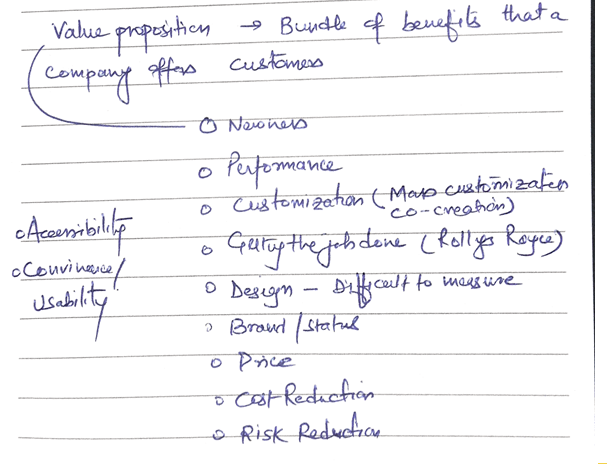 Value proposition → Bundle of benefits that a
company offers customers
o Newness
o Performance
o Customization (Mass customization
co-creation)
o Getting the job done (Rollys Royce)
o Design - Difficult to measure
o Brand / status
o Price
o Cost Reduction
o Risk Reduction
o Accessibility
o Convinence/
Usability